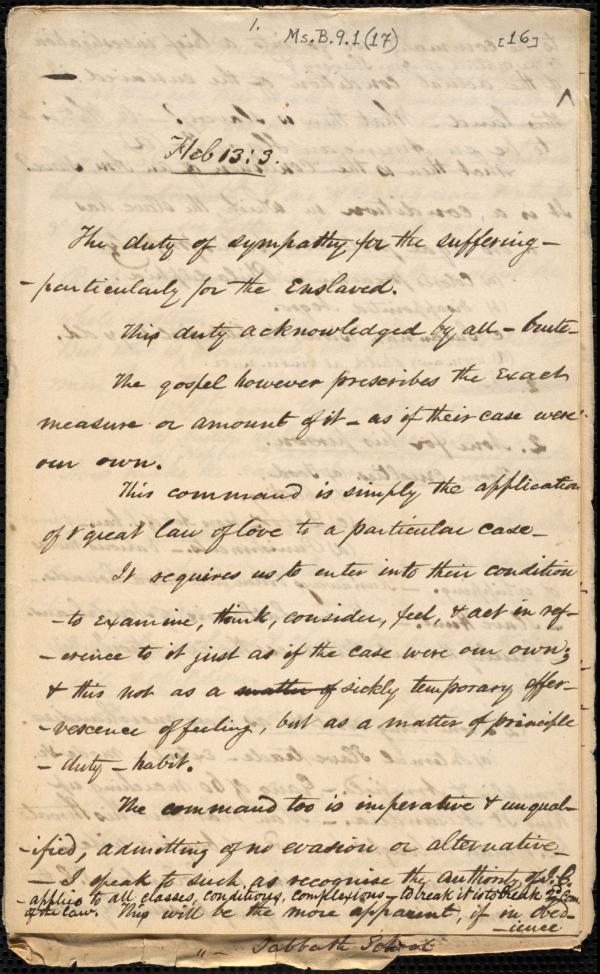 1.
Ms. B. 9. 1 (17)
[16]
Heb 13:3.
The duty of sympathy for the suffering -
- particularly for the Enslaved.
This duty acknowledged by all -
The gospel however prescribes the Exact
measure or amount of it - as if their case were
our own.
This command is simply the application
of great law of love to a particular case -
It requires us to enter into their condition
- to examine, think, consider, feel, & act in ref-
- erence to it just as if the case were our own;
& this not as a matter of sickly temporary effer-
- vescence of feeling, but as a matter of principle
- duty - habit.
The command too is imperative & unqual-
- ified, admitting of no evasion or alternative -
- I speak to such as recognise the authority of J. C.
- applies to all classes, conditions, complexions - to break it is to break 2d. Com.
of the Law. This will be the more apparent, if in obed-
- ience
" - Sabbath School